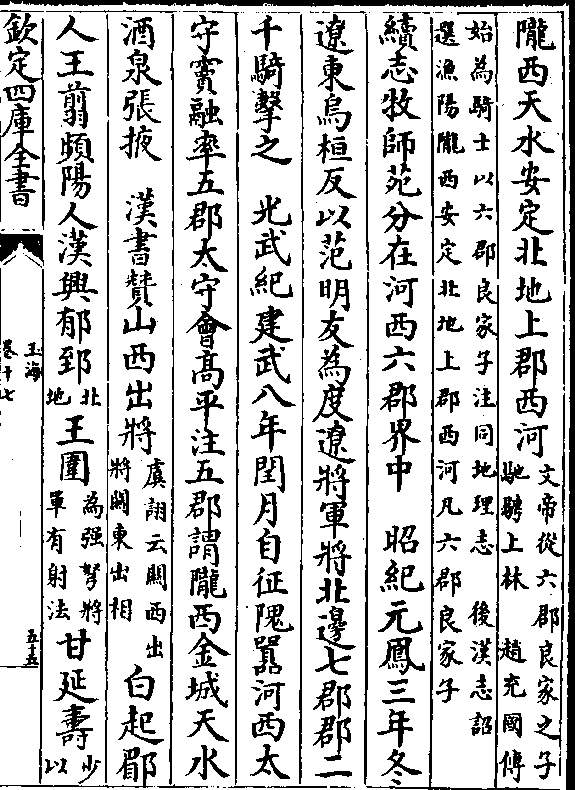 隴西天水安定北地上郡西河文帝從六郡良家之子
馳騁上林　趙充國傳
始為騎士以六郡良家子注同地理志　後漢志詔
選漁陽隴西安定北地上郡西河凡六郡良家子
續志牧師苑分在河西六郡界中　昭紀元鳳三年冬
遼東烏桓反以范明友為度遼將軍將北邊七郡郡二
千騎擊之　光武紀建武八年閏月自征隗囂河西太
守竇融率五郡太守會髙平注五郡謂隴西金城天水
酒泉張掖　漢書贊山西出將虞詡云關西出
將關東出相　白起郿
人王翦頻陽人漢興郁郅北
地王圍為强弩將
軍有射法甘延壽少
以
欽定四庫全書
玉海
卷十七
五十五